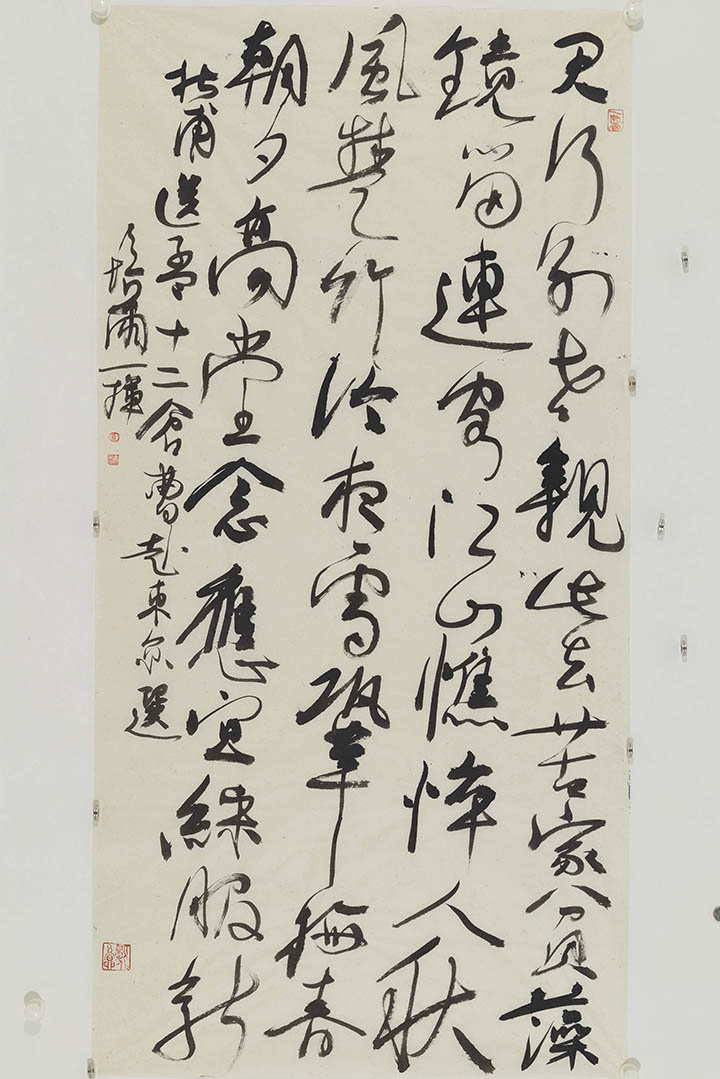 君行别老親此去苦家貧藻
鏡留連客江山憔悴人秋
風楚竹冷夜雪鞏梅春
朝夕高堂念應宜綵服新
杜甫送孟十二倉曹赴東京選
一揮